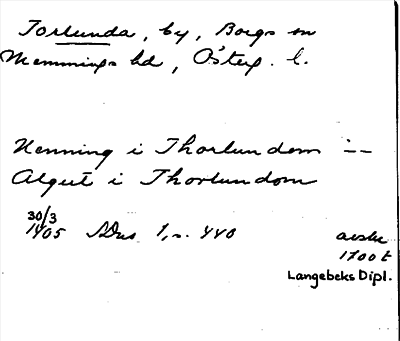 Torlunda, by, Borgs sn
Memmings hd, Österg. l.
Henning i Thorlundom --
Algut i Thorlundom
30/3
1405 SDns 1, s. 440
avskr
1700 t
Langebeks Dipl.